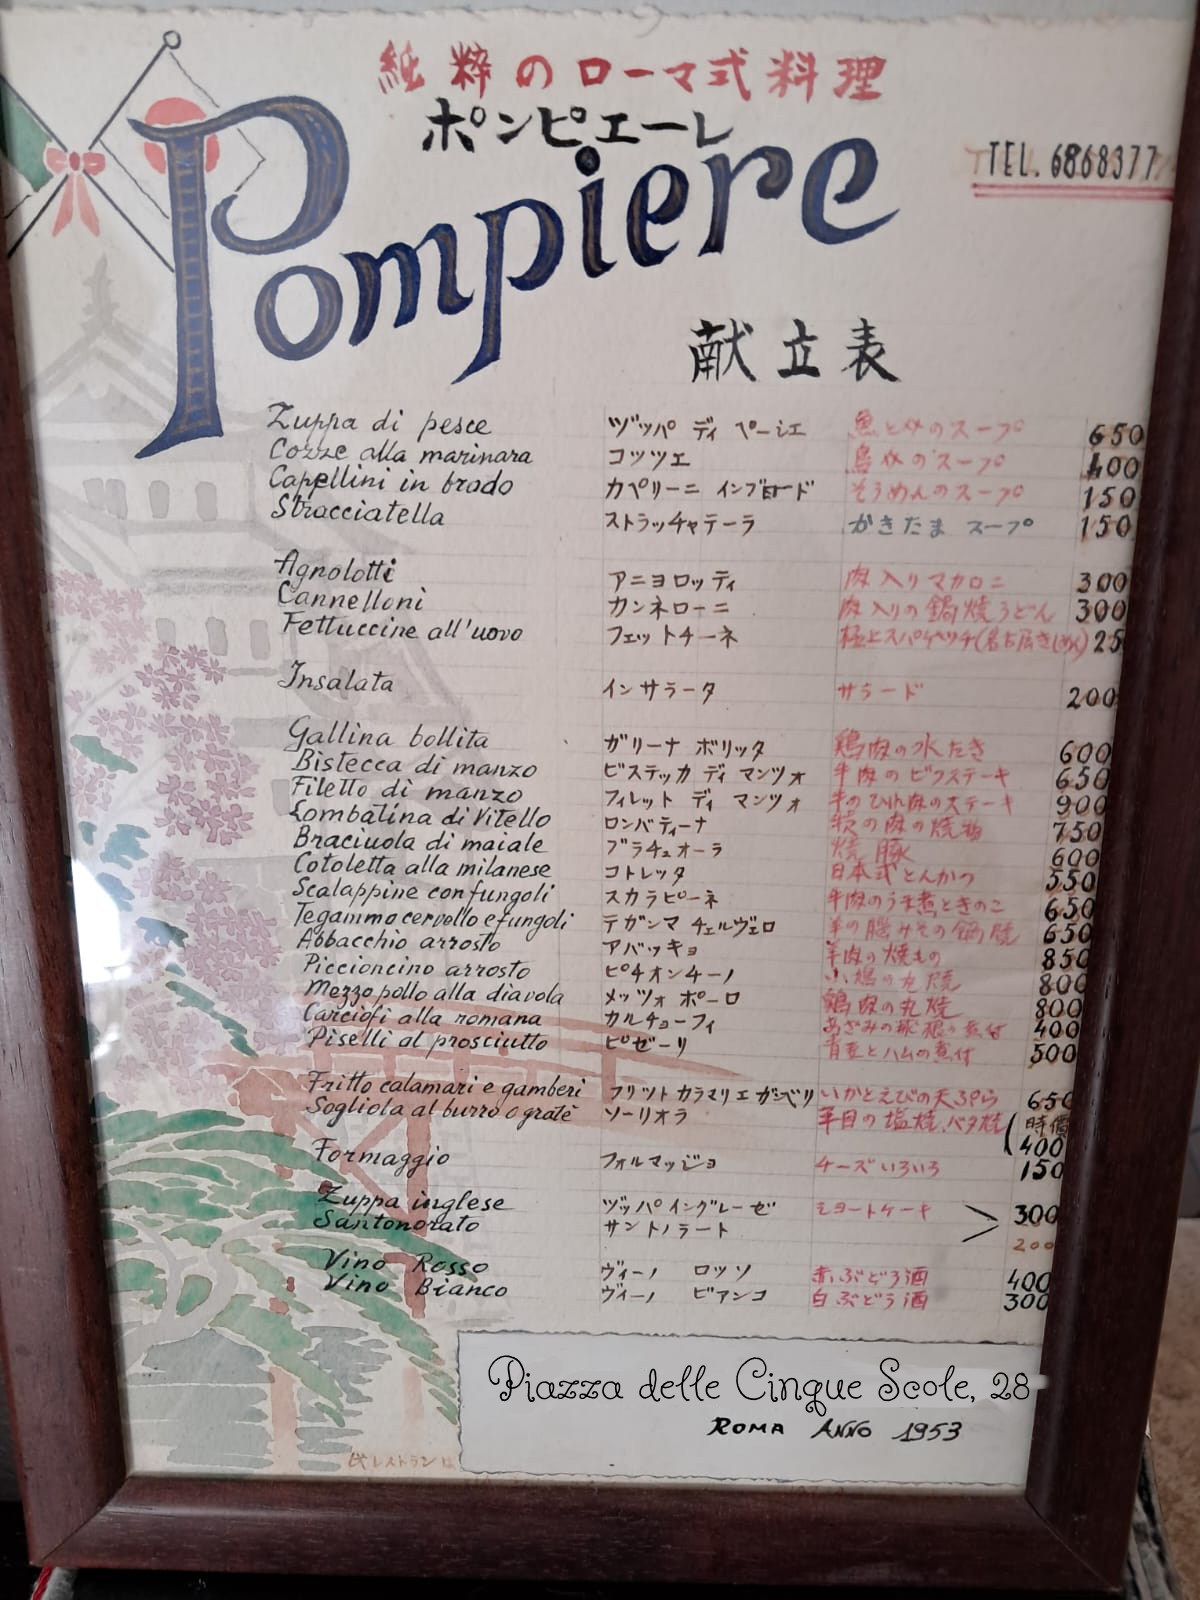 純粋のローマ式料理
ポンピエーレ
Pompiere
TEL. 6868377
献立表
Zuppa di pesce ヅッパ ディ ペーシェ 魚と父のスープ 650
Cozze alla marinara コッツェ のスープ 400
Cappellini in brado カペリーニ インブロード そうめんのスープ 150
Stracciatella ストラッチャテーラ かきたま スープ 150
Agnolotti アニヨロッティ 肉入りマカロニ 300
Cannelloni カンネローニ 肉入りの鍋焼うどん 300
Fettuccine all'uovo フェットチーネ 極上スパゲッチ(名古屋きしめん) 25
Insalata インサラータ サラード 200
Gallina bollita ガリーナ ボリッタ 鶏肉の水たき 600
Bistecca di manzo ビステッカ ディ マンツォ 牛肉のビフステーキ 650
Filetto di manzo フィレット ディ マンツォ 牛のひれ肉のステーキ 900
Lombatina di Vitello ロンバティーナ の肉の焼物 750
Braciuola di maiale ブラチュオーラ 焼豚 600
Cotoletta alla milanese コトレッタ 日本式とんかつ 550
Scalappine con fungoli スカラピーネ 牛肉のうま煮ときのこ 650
Tegammo cervello e fungoli テガンマ チェルヴェロ 羊の脳みその鍋焼 650
Abbacchio arrosto アバッキョ 羊肉の焼もの 850
Piccioncino arrosto ピチオンチーノ 小鳩の丸焼 800
Mezzo pollo alla diavola メッツォ ポーロ 鶏肉の丸焼 800
Carciofi alla romana カルチョーフィ あざみの球根の煮付 400
Piselli al prosciutto ピゼーリ 青豆とハムの煮付 500
Fritto calamari e gamberi フリット カラマリ エ ガンベリ いかとえびの天ぷら 650
Sogliola al burro o gratè ソーリオラ 平目の塩焼、バタ焼 (時價
400
Formaggio フォルマッジョ チーズいろいろ 150
Zuppa inglese ヅッパ イングレーゼ ショートケーキ 300
Santonorato サントノラート 200
Vino Rosso ヴィーノ ロッソ 赤ぶどう酒 400
Vino Bianco ヴィーノ ビアンコ 白ぶどう酒 300
Piazza delle Cinque Scole, 28
ROMA ANNO 1953
レストラン